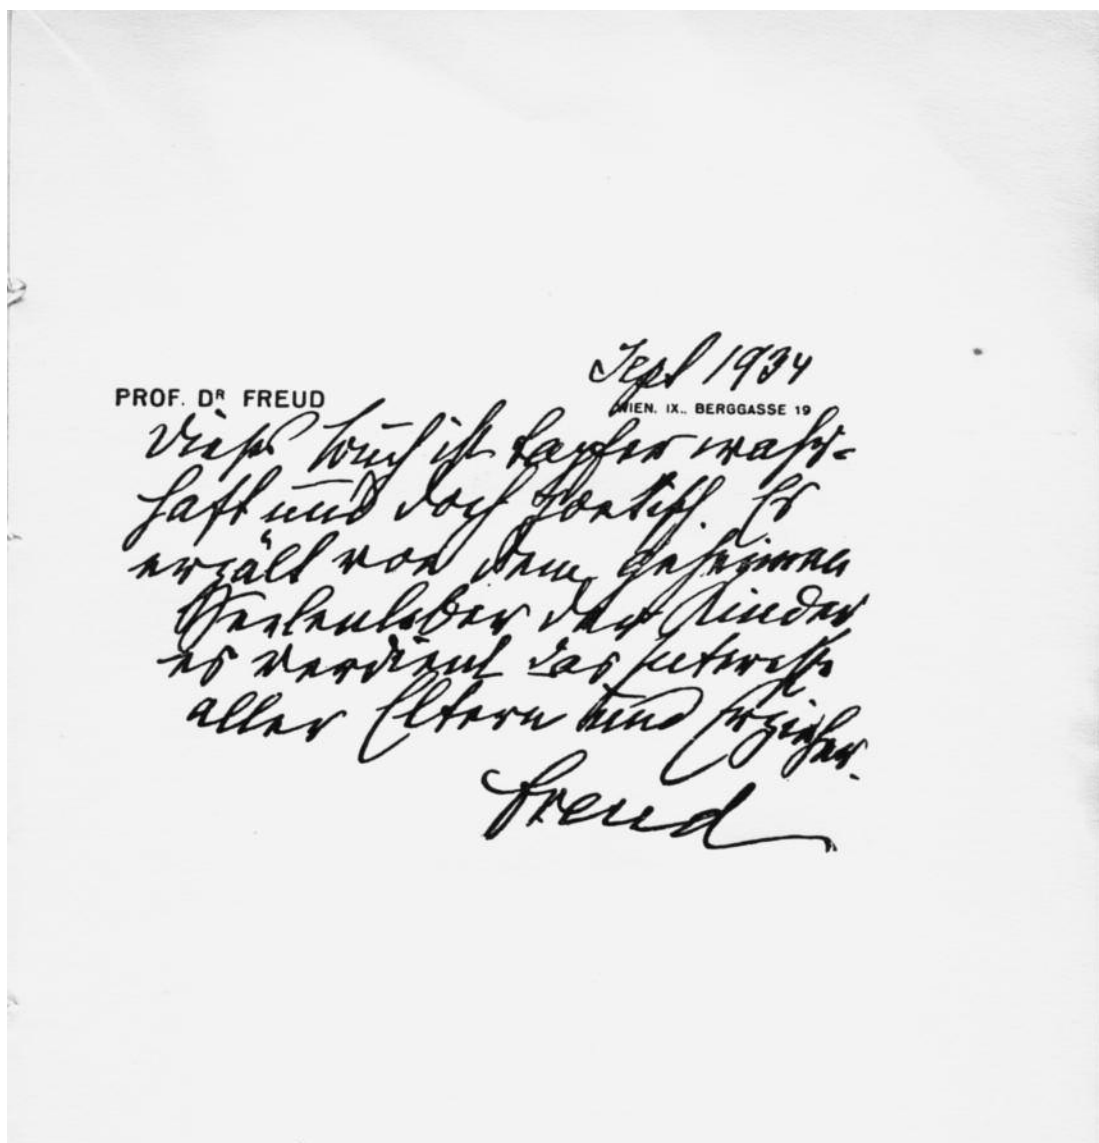 Sept 1934
PROF. DR FREUD
WIEN. IX., BERGGASSE 19
Dieses Buch ist tapfer wahr=
haft und doch poetisch. Es
erzält von dem geheimen
Seelenleben der Kinder
es verdient das Interesse
aller Eltern und Erzieher.
Freud